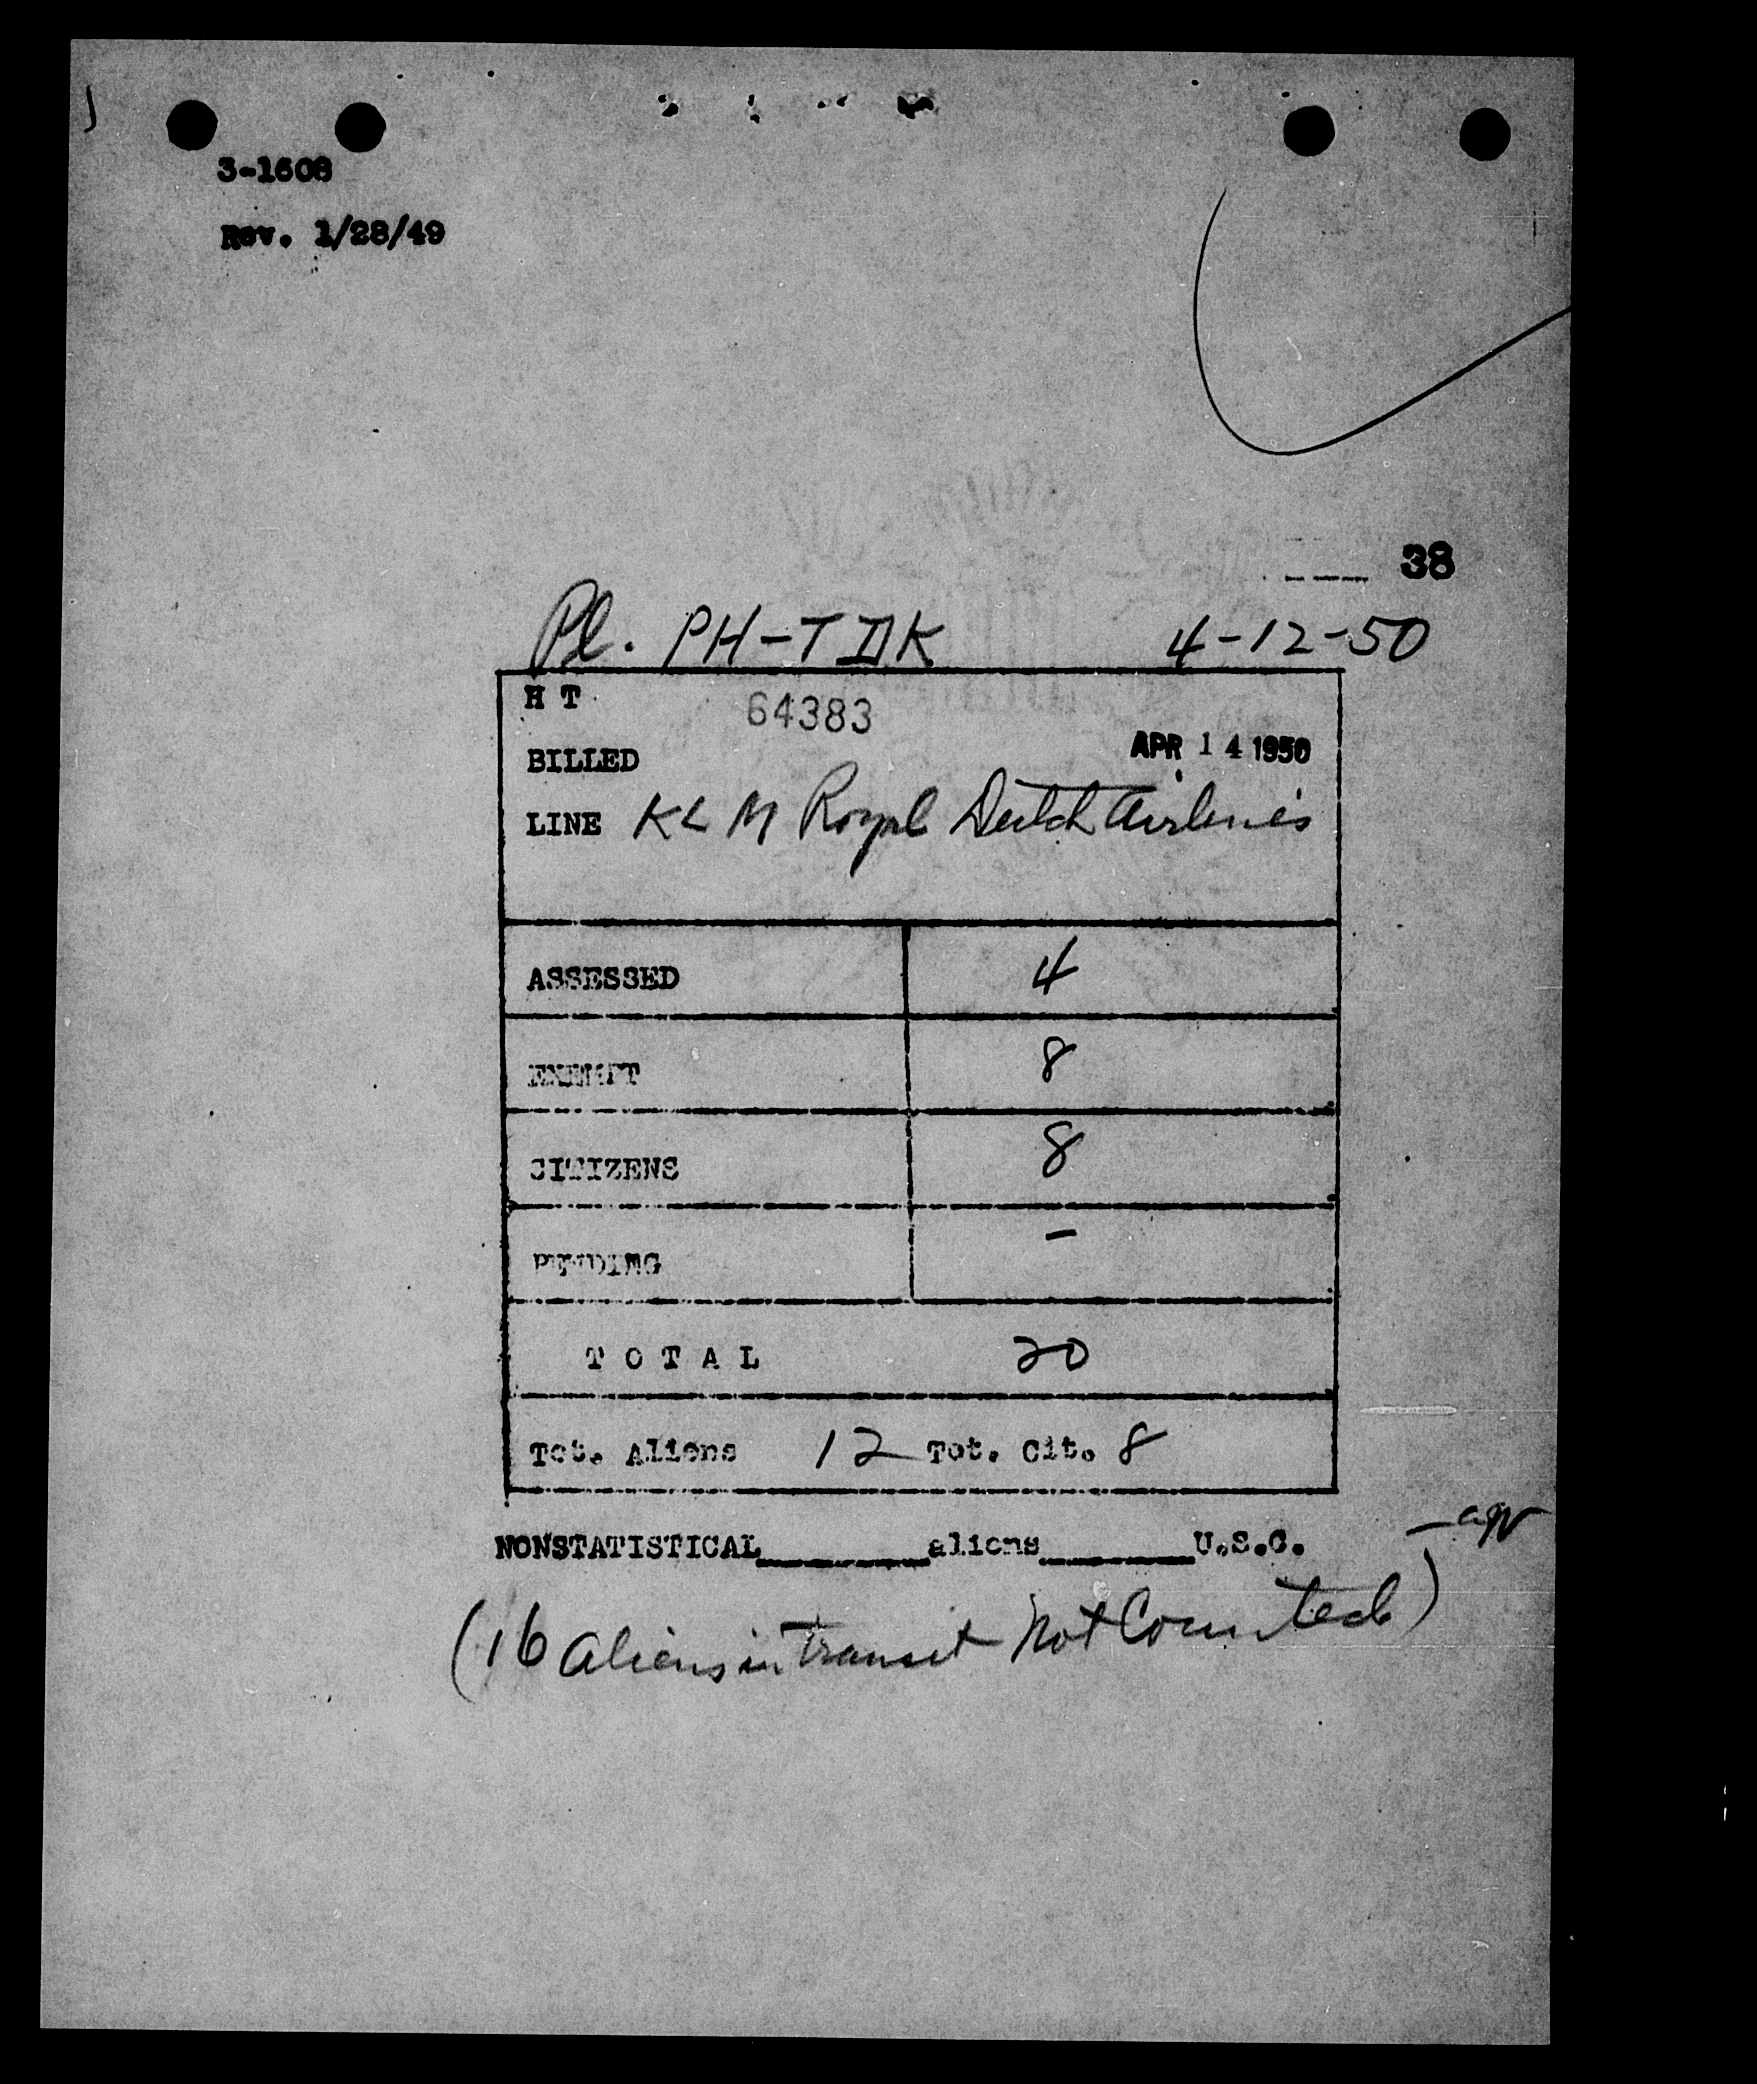 3-1608
Rev. 1/28/49
38
Pl. PH-TDK 4-12-50
H T 64383
BILLED APR 14 1950
LINE KLM Royal Dutch Airlines
ASSESSED 4
EXEMPT 8
CITIZENS 8
PENDING -
TOTAL 20
Tot. Aliens 12 Tot. Cit. 8
NONSTATISTICAL________aliens________U.S.C.
(16 aliens in transit Not Counted)